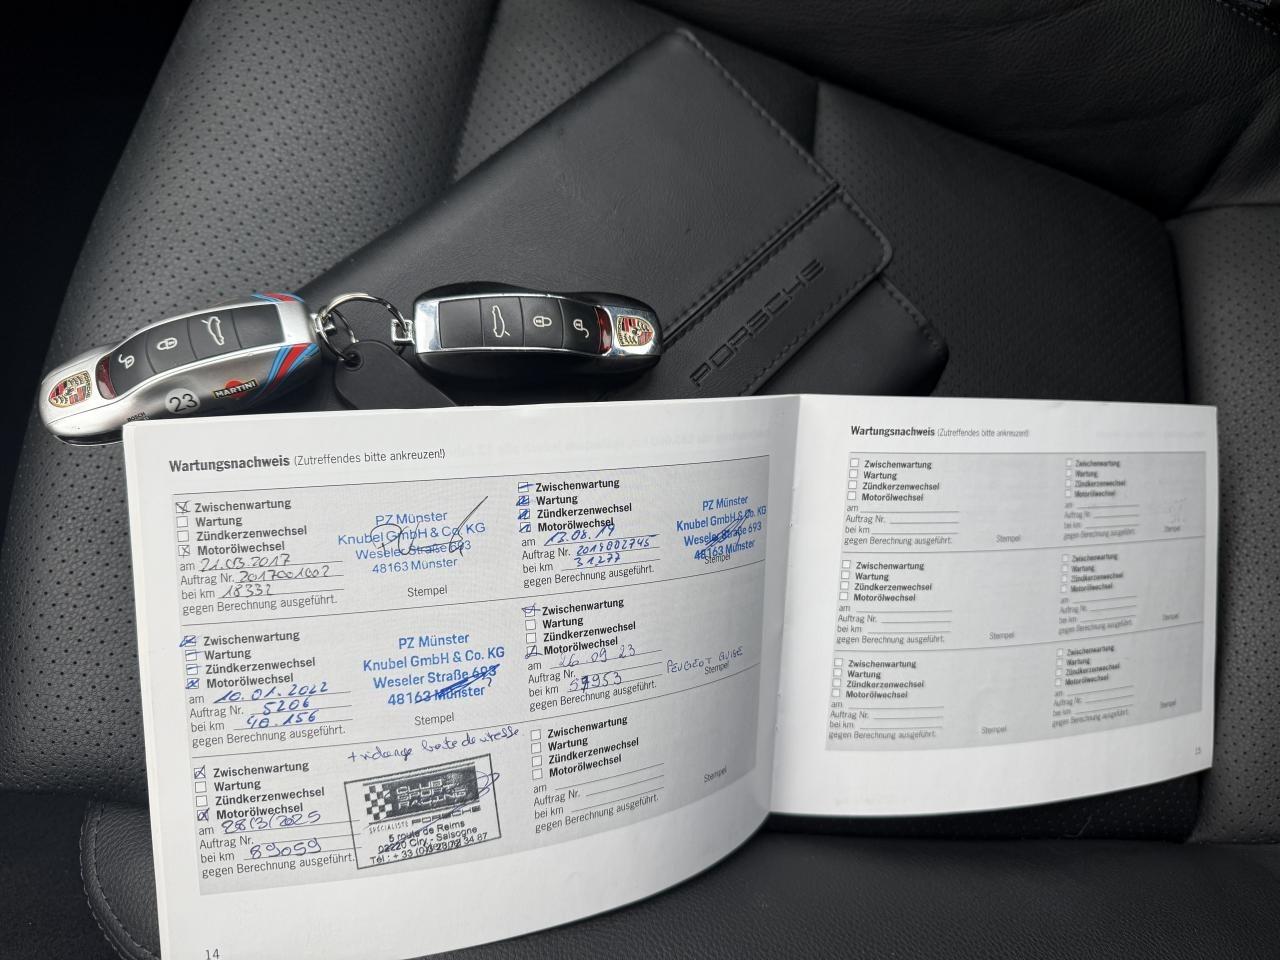 PORSCHE
23
MARTINI
Wartungsnachweis (Zutreffendes bitte ankreuzen!)
Zwischenwartung
Wartung
Zündkerzenwechsel
Motorölwechsel
am 21.03.2017
Auftrag Nr. 2017001002
bei km 18332
gegen Berechnung ausgeführt.
PZ Münster
Knubel GmbH & Co. KG
Weseler Straße 693
48163 Münster
Stempel
Zwischenwartung
Wartung
Zündkerzenwechsel
Motorölwechsel
am 12.08.19
Auftrag Nr. 2019002745
bei km 31277
gegen Berechnung ausgeführt.
PZ Münster
Knubel GmbH & Co. KG
Weseler Straße 693
48163 Münster
Stempel
Zwischenwartung
Wartung
Zündkerzenwechsel
Motorölwechsel
am 10.01.2022
Auftrag Nr. 5206
bei km 48.156
gegen Berechnung ausgeführt.
PZ Münster
Knubel GmbH & Co. KG
Weseler Straße 693
48163 Münster
Stempel
Zwischenwartung
Wartung
Zündkerzenwechsel
Motorölwechsel
am 26 09 23
Auftrag Nr.
bei km 57953
gegen Berechnung ausgeführt.
PEUGEOT GUISE
Stempel
+ vidange boite de vitesse
Zwischenwartung
Wartung
Zündkerzenwechsel
Motorölwechsel
am 28/3/2025
Auftrag Nr.
bei km 89059
gegen Berechnung ausgeführt.
CLUB
SPORT
RACING
SPÉCIALISTE PORSCHE
5 route de Reims
02220 Ciry - Salsogne
Zwischenwartung
Wartung
Zündkerzenwechsel
Motorölwechsel
am
Auftrag Nr.
bei km
gegen Berechnung ausgeführt.
Stempel
14
Wartungsnachweis (Zutreffendes bitte ankreuzen!)
Zwischenwartung
Wartung
Zündkerzenwechsel
Motorölwechsel
am
Auftrag Nr.
bei km
gegen Berechnung ausgeführt.
Stempel
Zwischenwartung
Wartung
Zündkerzenwechsel
Motorölwechsel
am
Auftrag Nr.
bei km
gegen Berechnung ausgeführt.
Stempel
Zwischenwartung
Wartung
Zündkerzenwechsel
Motorölwechsel
am
Auftrag Nr.
bei km
gegen Berechnung ausgeführt.
Stempel
Zwischenwartung
Wartung
Zündkerzenwechsel
Motorölwechsel
am
Auftrag Nr.
bei km
gegen Berechnung ausgeführt.
Stempel
Zwischenwartung
Wartung
Zündkerzenwechsel
Motorölwechsel
am
Auftrag Nr.
bei km
gegen Berechnung ausgeführt.
Stempel
Zwischenwartung
Wartung
Zündkerzenwechsel
Motorölwechsel
am
Auftrag Nr.
bei km
gegen Berechnung ausgeführt.
Stempel
15